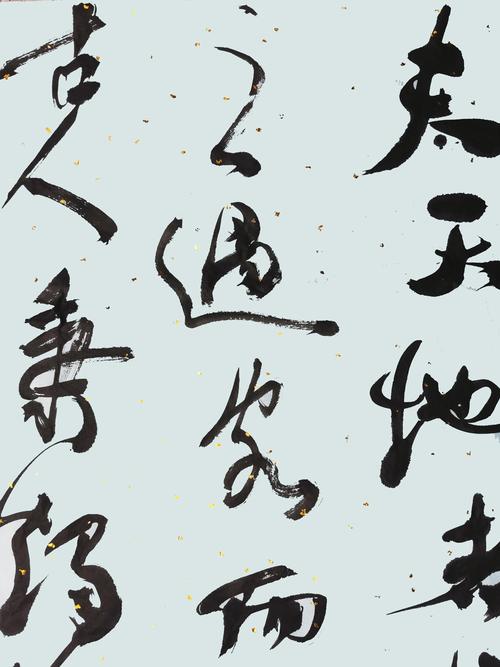 夫天地者
之過客而
古人秉燭